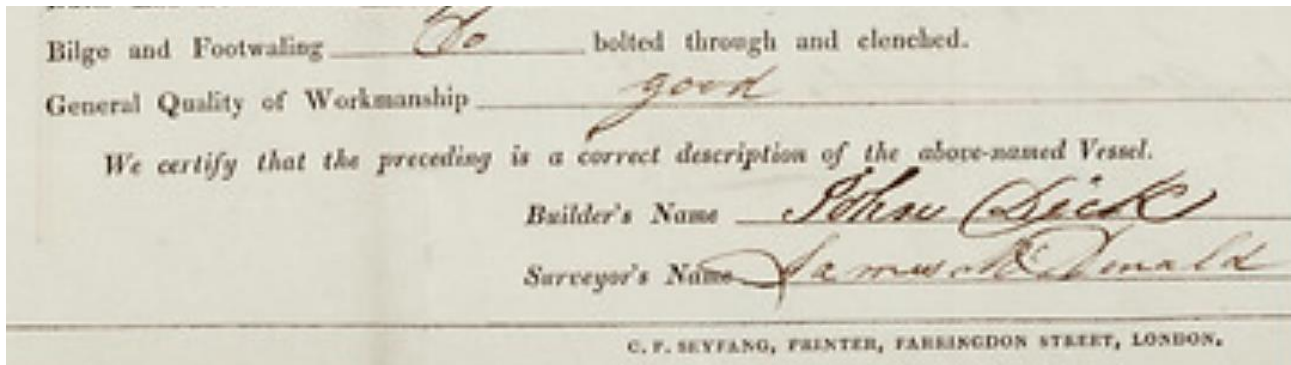 Bilge and Footwaling Do bolted through and clenched.
General Quality of Workmanship good
We certify that the preceding is a correct description of the above-named Vessel.
Builder's Name John Dick
Surveyor's Name James McDonald
C. F. SEYFANG, PRINTER, FARRINGDON STREET, LONDON.